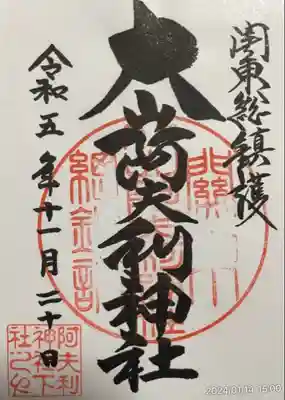 関東総鎮護
大山阿夫利神社
令和五年十一月二十日
阿夫利
神社下
社之印